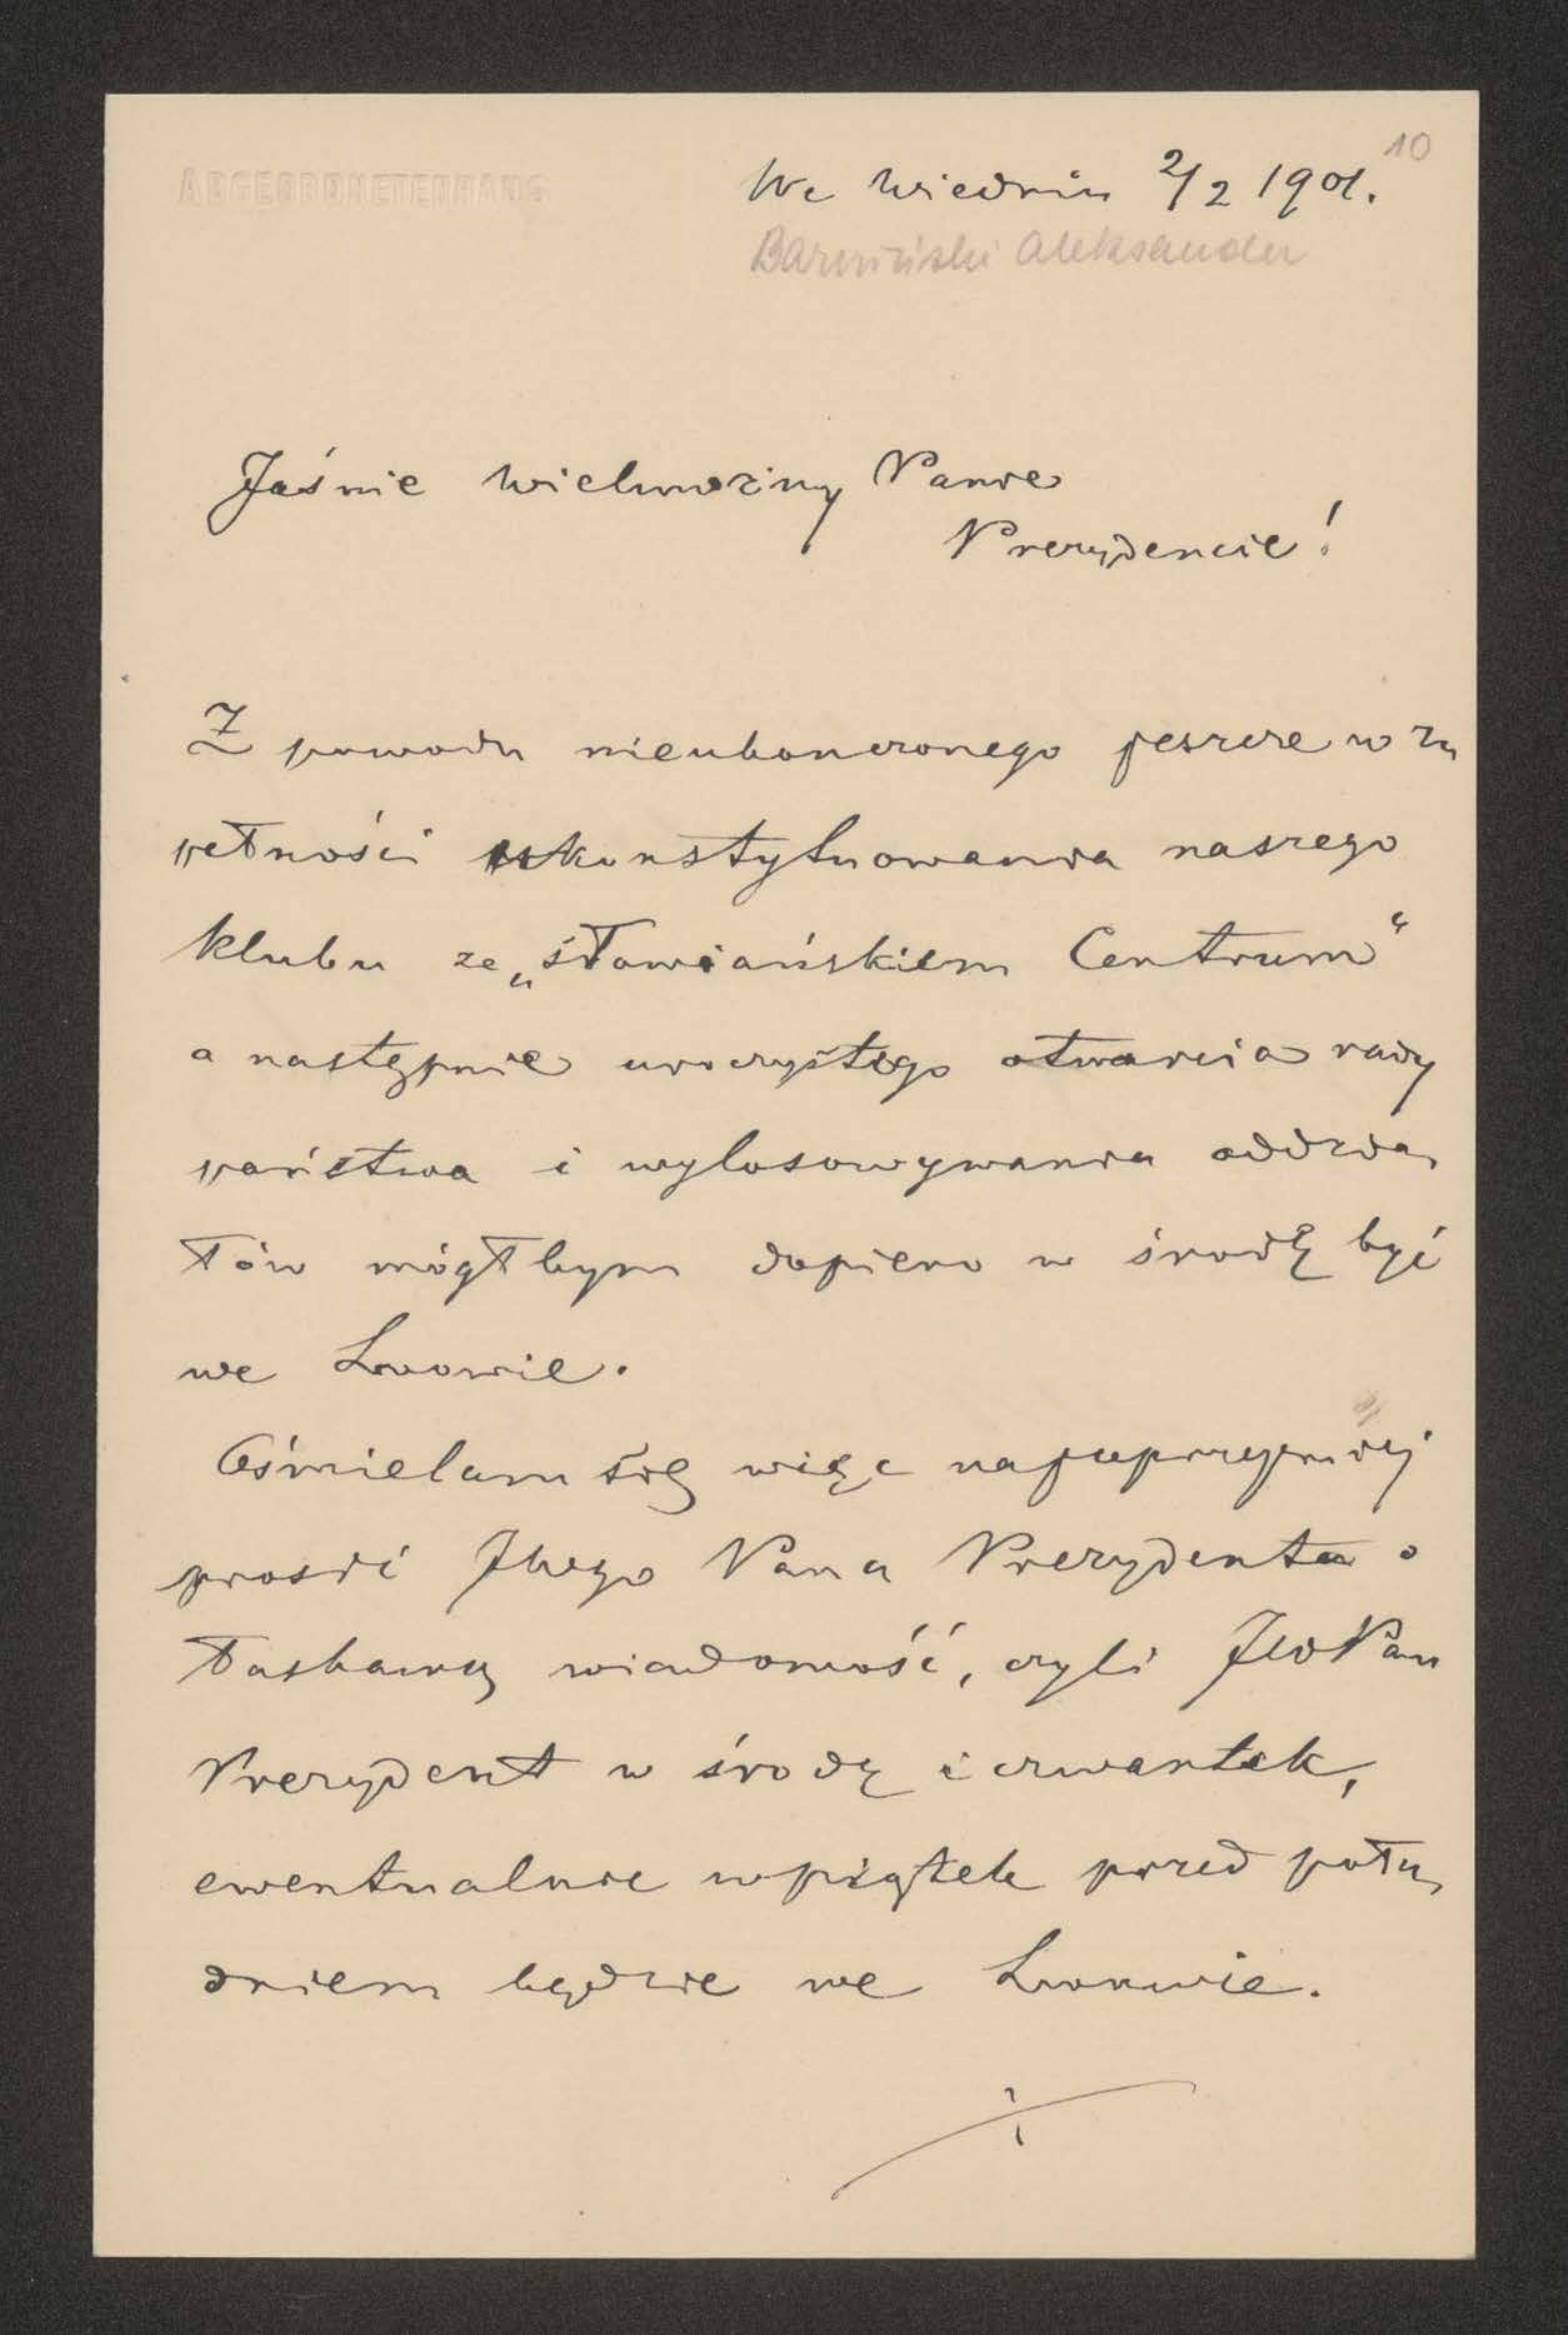 10
ABGEORDNETENHAUS
We Wiedniu 2/2 1901.
Barwiński Aleksander
Jaśnie Wielmożny Panie
Prezydencie!
Z powodu nieukończonego jeszcze w zu
pełności ukonstytuowania naszego
klubu ze „słowiańskiem Centrum“
a następnie uroczystego otwarcia rady
państwa i wylosowywania oddzia,
łów mógłbym dopiero w środę być
we Lwowie.
Ośmielam się więc najuprzejmiej
prosić JWgo Pana Prezydenta o
łaskawą wiadomość, czyli JW Pan
Prezydent w środę i czwartek,
ewentualnie w piątek przed połu,
dniem będzie we Lwowie.